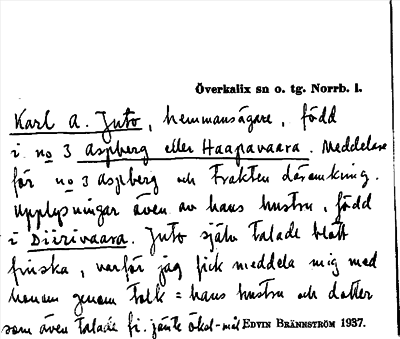 Överkalix sn o. tg. Norrb. l.
Karl A. Juto, hemmansägare, född
i no 3 Aspberg eller Haapavaara. Meddelare
för no 3 Aspberg och trakten däromkring.
Upplysningar även av hans hustru, född
i Diirivaara. Juto själv talade blott
finska, varför jag fick meddela mig med
honom genom tolk = hans hustru och dotter
som även talade fi. jämte ökal-mål EDVIN BRÄNNSTRÖM 1937.